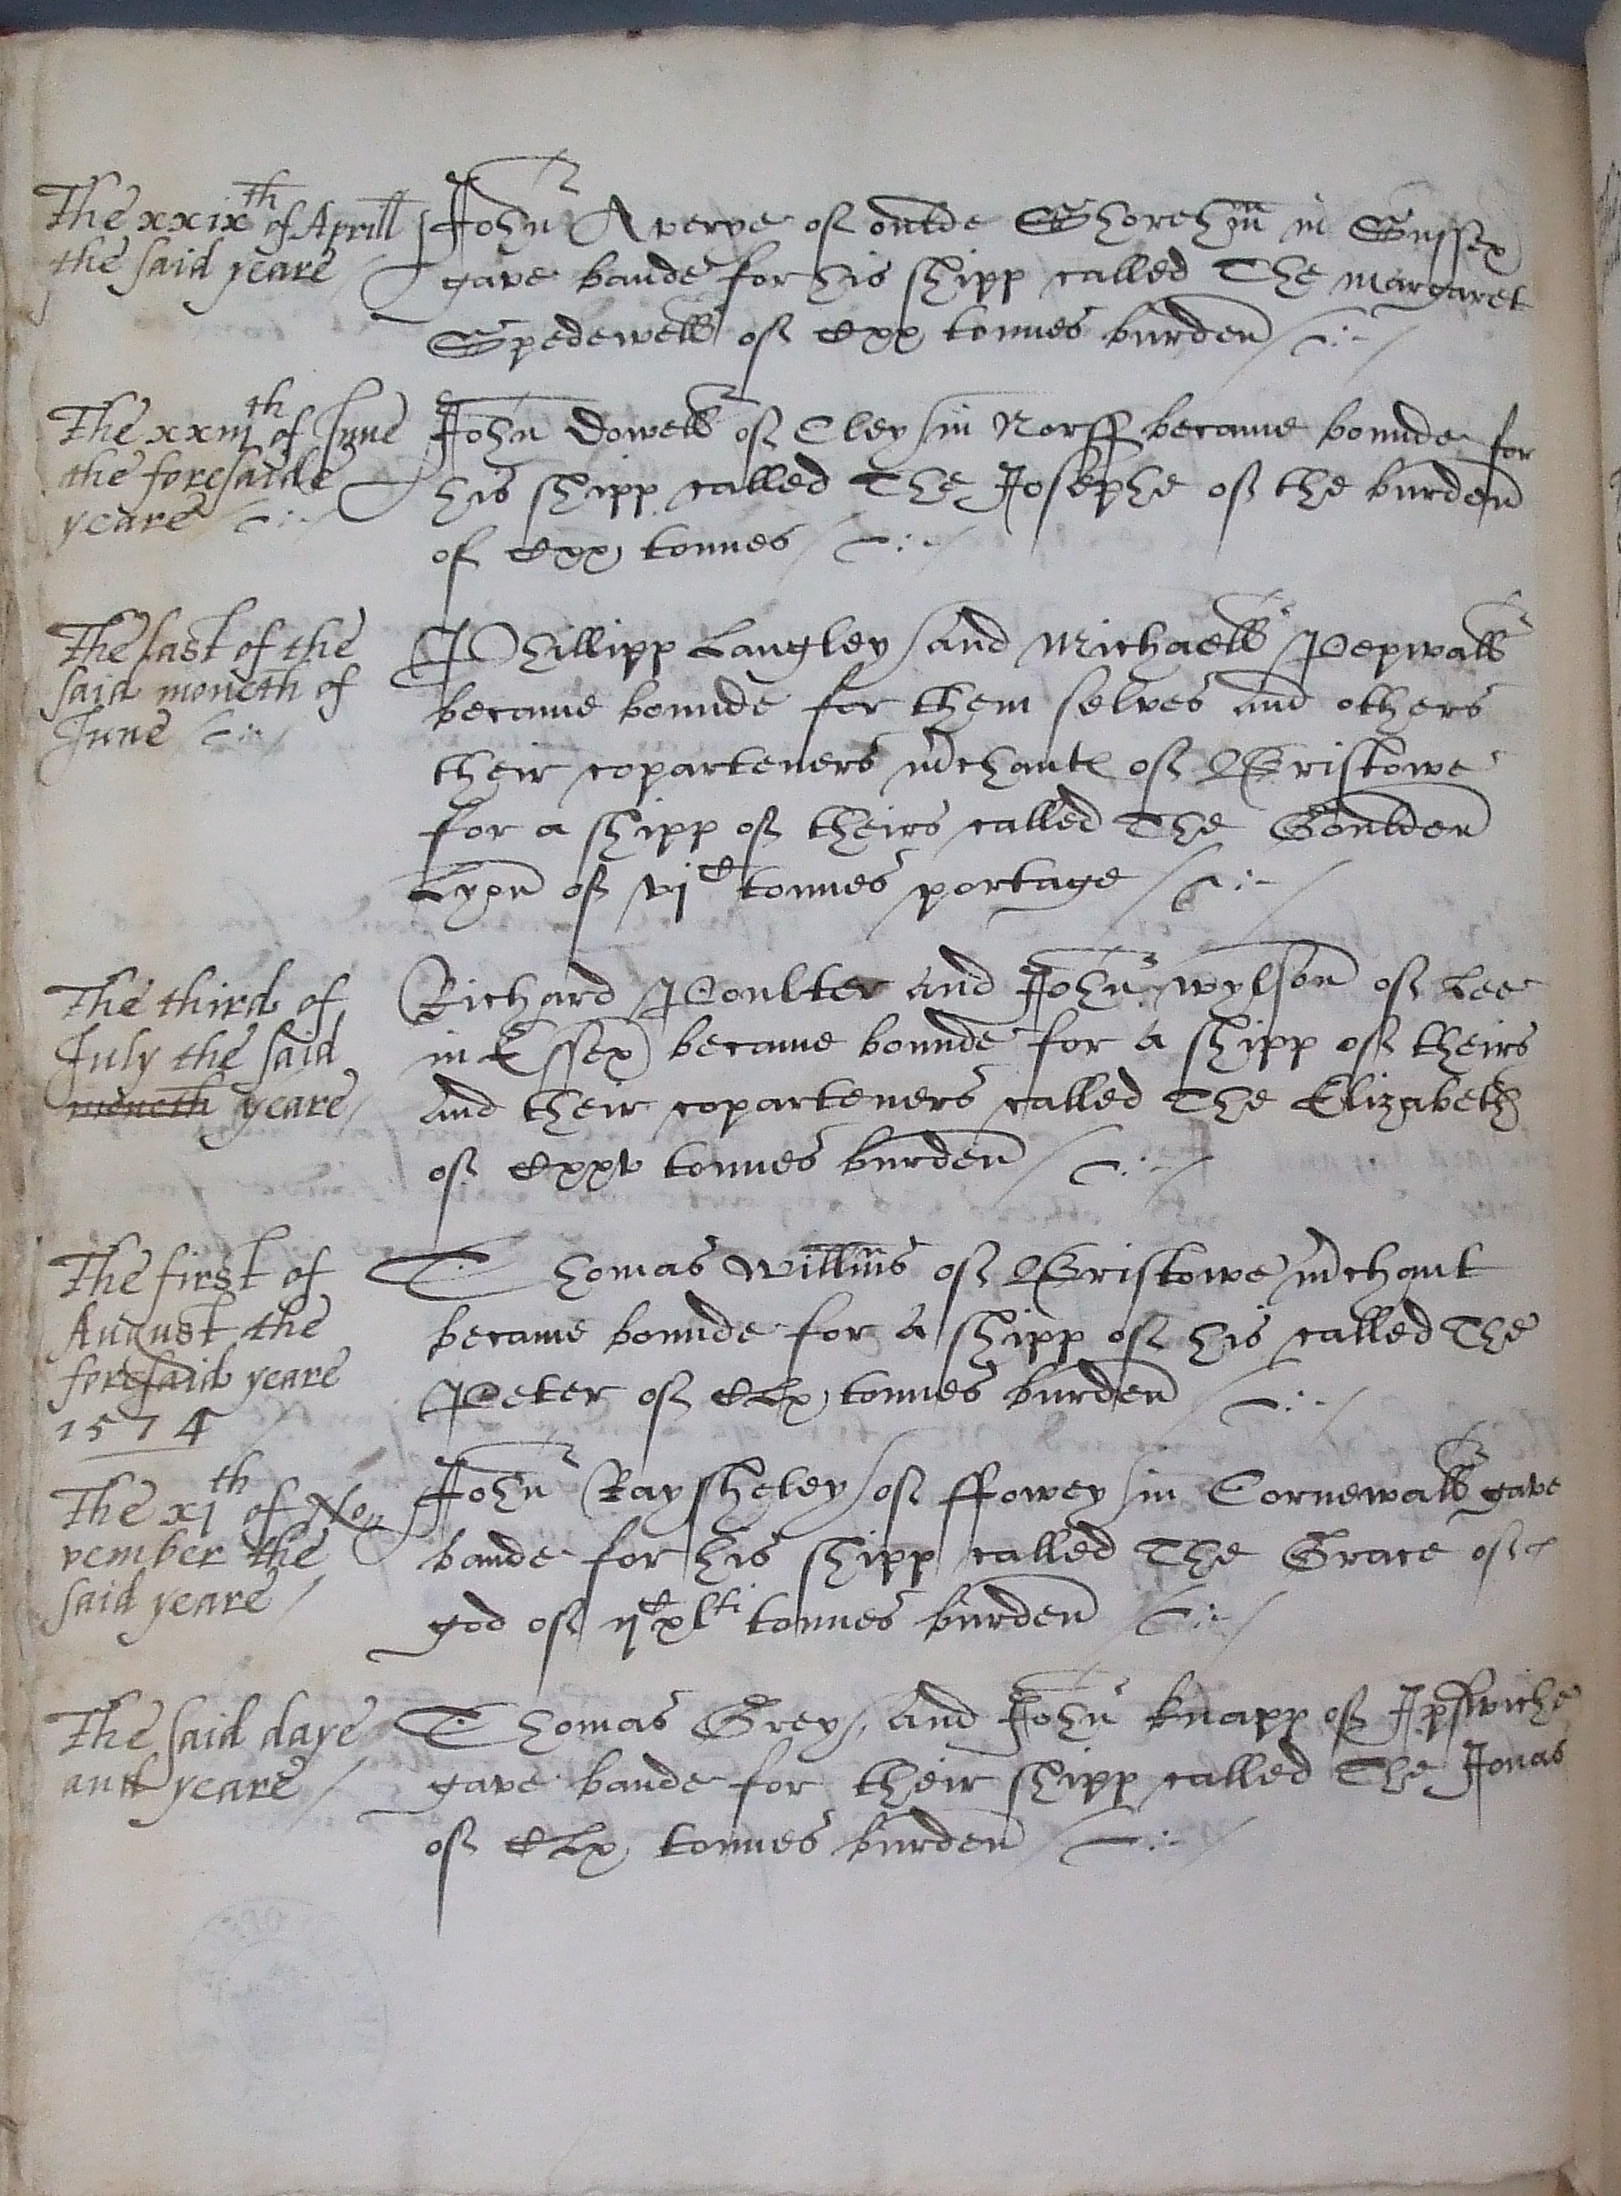 The xxix th of Aprill
the said yeare
John Averye of oulde Shorehm in Sussex
gave bande for his shipp called The Margaret
Spedewell of Cxx tonnes burden
The xxiij th of June
the foresaide
yeare
John Dowell of Cley in Norff became bounde for
his shipp called The Josephe of the burden
of Cxx tonnes
The last of the
said moneth of
June
Phillipp Langley and Michaell Pepwall
became bounde for them selves and others
their coparteners mchantes of Bristowe
for a shipp of theirs called The Goulden
Lyon of vj C tonnes portage
The third of
July the said
moneth yeare
Richard Poulter and John Wylson of Lee
in Essex became bounde for a shipp of theirs
and their coparteners called The Elizabeth
of Cxxv tonnes burden
The first of
August the
foresaid yeare
1574
Thomas Willms of Bristowe mchant
became bounde for a shipp of his called The
Peter of CLx tonnes burden
The xj th of No
vember the
said yeare
John Raysheley of ffowey in Cornewall gave
bande for his shipp called The Grace of
god of ij C xl ti tonnes burden
The said daye
and yeare
Thomas Grey and John Knapp of Ipswiche
gave bande for their shipp called The Jonas
of CLx tonnes burden